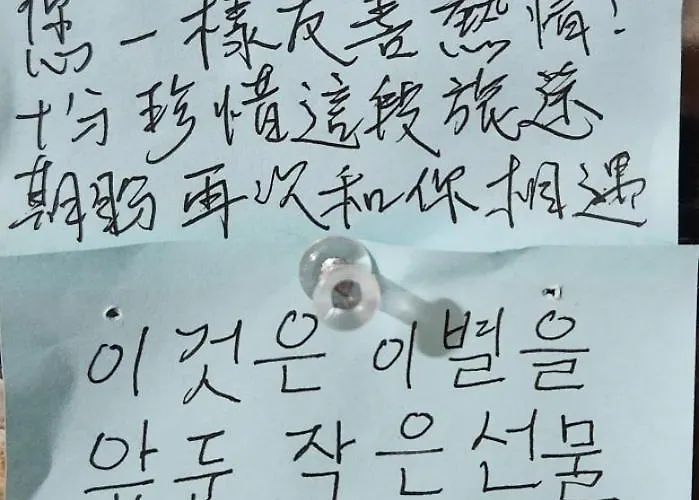 您一樣友善熱情!
十分珍惜這段旅途
期盼再次和你相遇
이것은 이별을
앞둔 작은선물